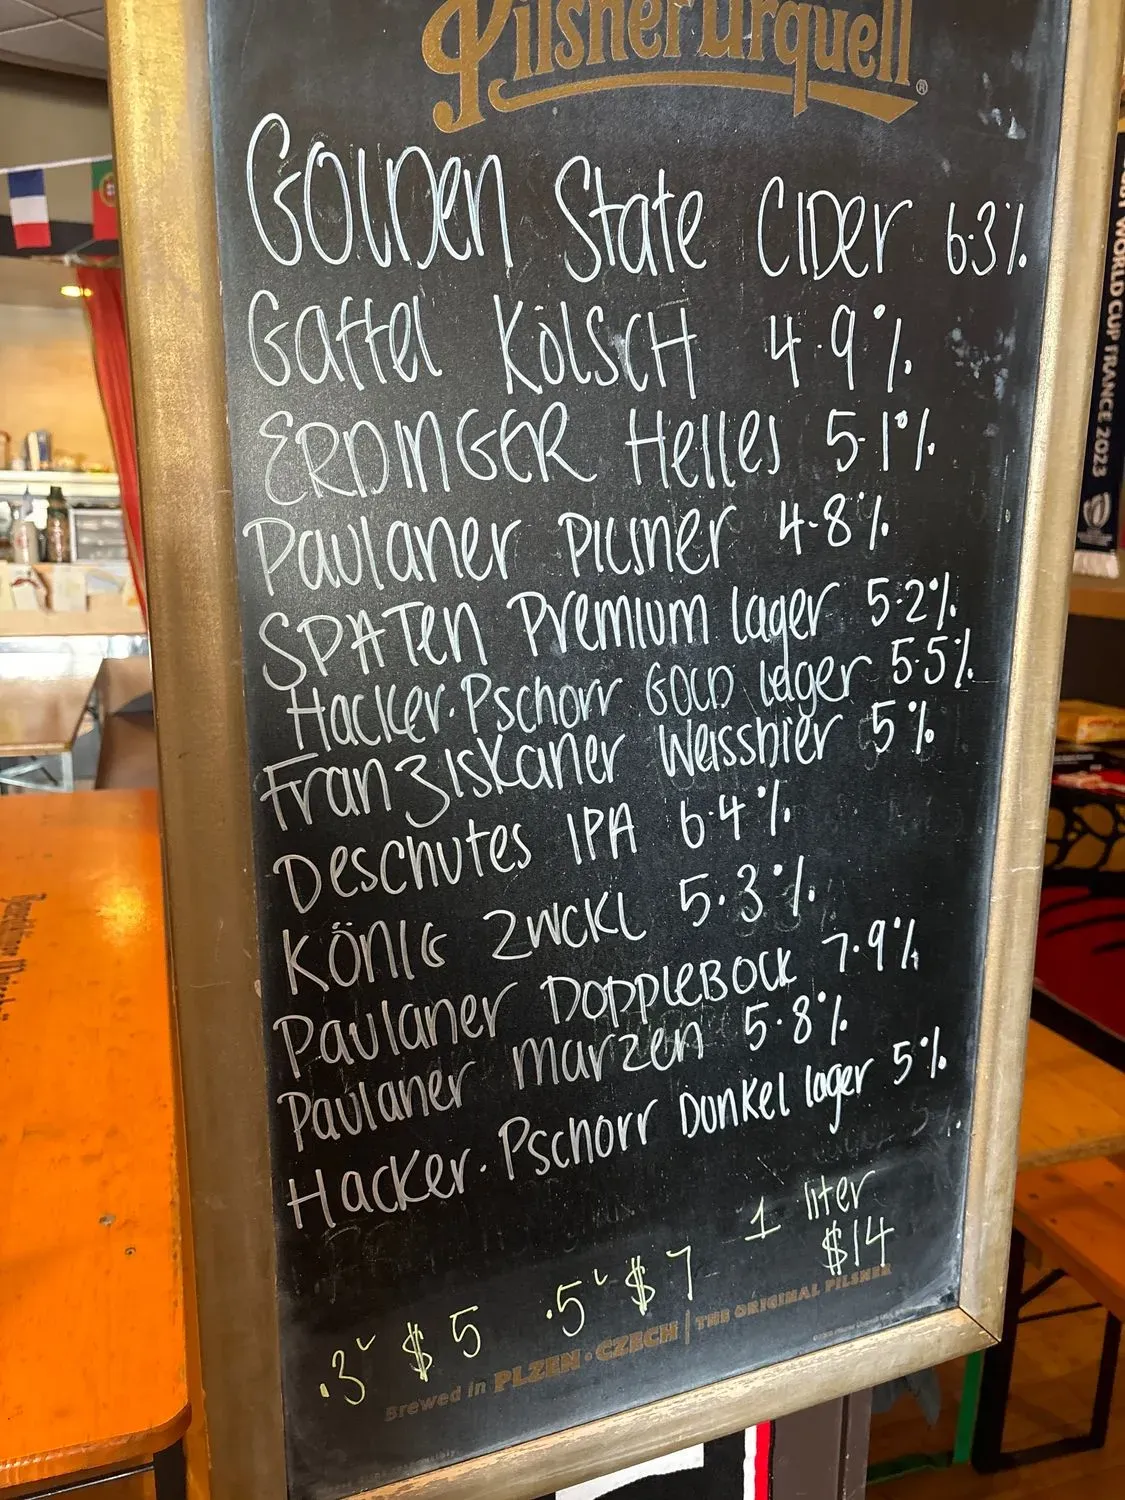 Pilsner Urquell®
GOLDEN State CIDER 6.3%
Gaffel KÖLSCH 4.9%
ERDINGER Helles 5.1%
Paulaner PILSNER 4.8%
SPATEN Premium lager 5.2%
Hacker-Pschorr GOLD lager 5.5%
Franziskaner Weissbier 5%
DESCHUTES IPA 6.4%
KÖNIG ZWCKL 5.3%
Paulaner DOPPLEBOCK 7.9%
Paulaner Marzen 5.8%
Hacker-Pschorr Dunkel lager 5%
1 liter
.3L $5 .5L $7 $14
Brewed in PLZEN • CZECH | THE ORIGINAL PILSNER
WORLD CUP FRANCE 2023